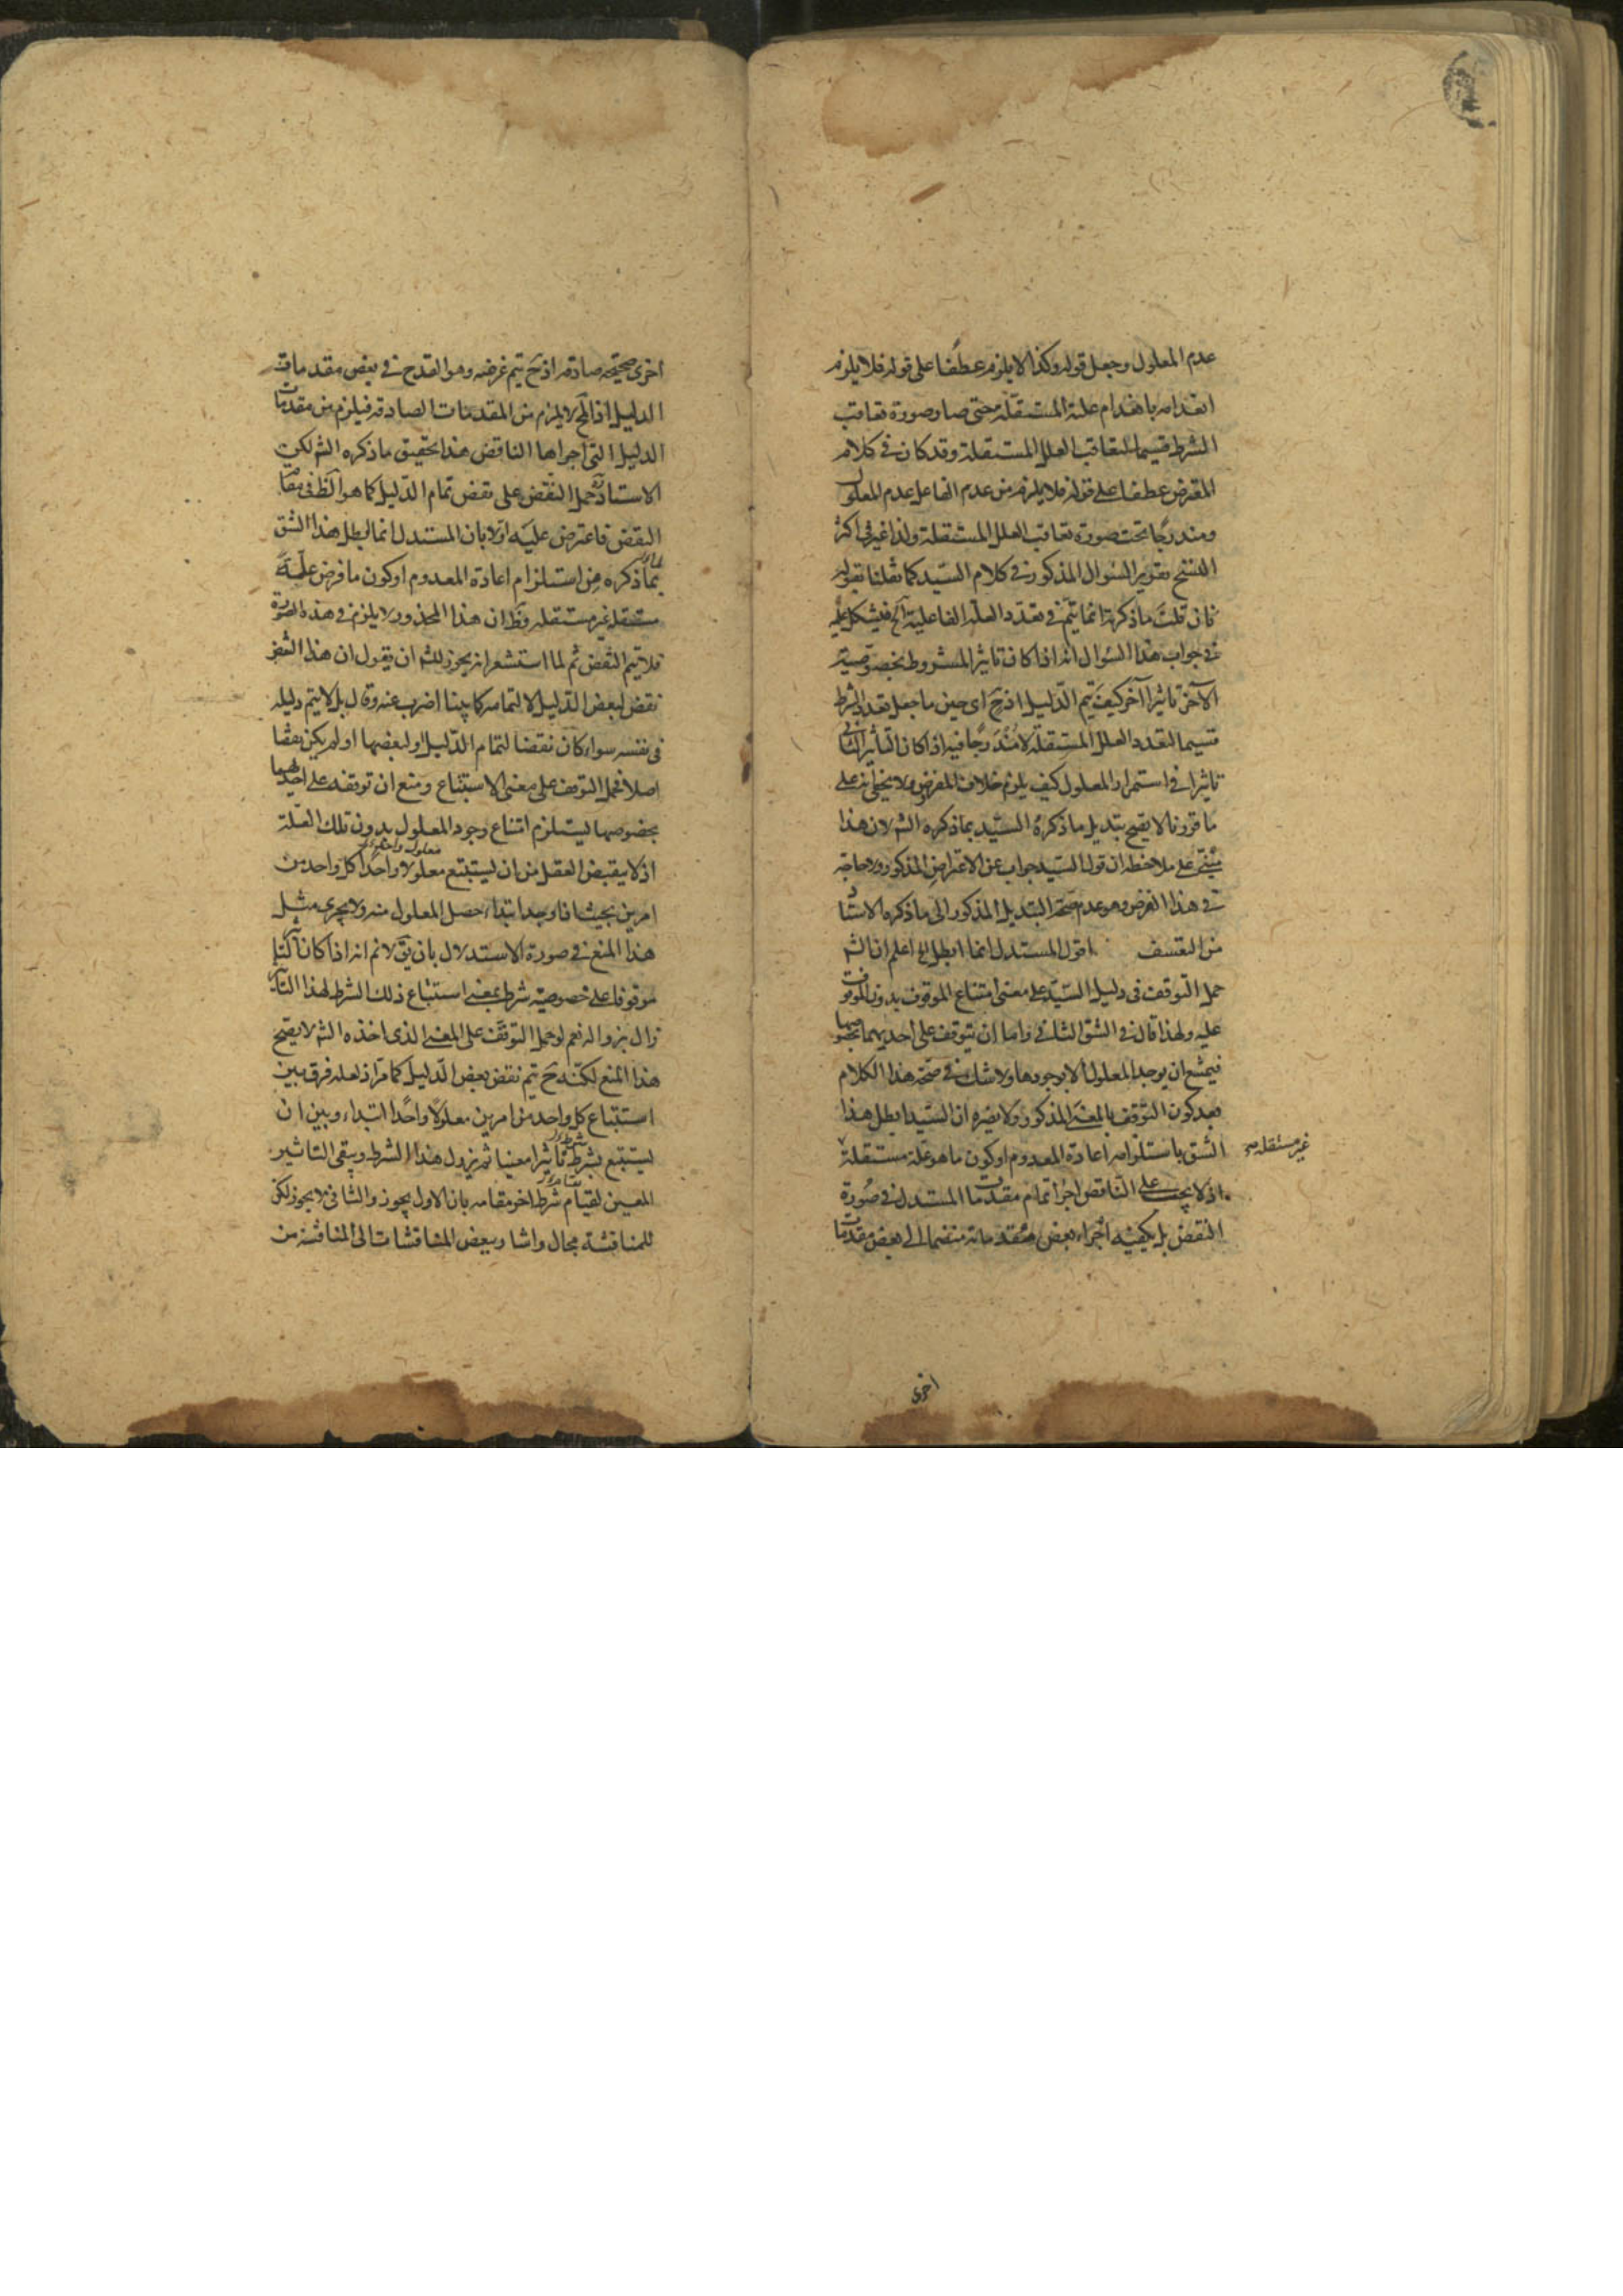 عدم المعلول وجعل قوله وكذا لا يلزم عطفا على قوله فلا يلزم
انعدامه بانعدام علته المستقلة حتى صار صورة تعاقب
الشرط قسيما لتعاقب العلل المستقلة وقد كان في كلام
المعترض عطفا على قوله فلا يلزم من عدم الفاعل عدم المعلول
ومندرجا تحت صورة تعاقب العلل المستقلة ولذا غير في اكثر
النسخ تقرير السؤال المذكور في كلام السيد كما نقلنا بقوله
فان قلت ما ذكرته انما يتم في تعدد العلة الفاعلية الخ فيشكل عليه
في جواب هذا السؤال انه اذا كان تاثير المشروط بخصوصية
الآخر تاثيرا آخر كيف يتم الدليل اذ ح اى حين ما جعل تعدد الشرط
قسيما لتعدد العلل المستقلة لا مندرجا فيه اذا كان التاثير الثاني
تاثيرا في استمرار المعلول كيف يلزم خلاف المفروض ولا يخفى انه على
ما قررنا لا يصح تبديل ما ذكره السيد بما ذكره الشم لان هذا
مبتنى على ملاحظه ان قول السيد جواب عن الاعتراض المذكور ولا حاجة
في هذا الغرض وهو عدم صحة التبديل المذكور الى ما ذكره الاستاد
من التعسف اقول المستدل انما ابطل الخ اعلم ان الشم
حمل التوقف في دليل السيد على معنى امتناع الموقوف بدون الموقوف
عليه ولهذا قال في الشق الثاني واما ان يتوقف على احديهما بخصوصها
فيمتنع ان يوجد المعلول الا بوجودها ولا شك في صحة هذا الكلام
بعد كون التوقف بالمعنى المذكور ولا يضره ان السيد ابطل هذا
الشق باستلزامه اعادة المعدوم او كون ما هو علة مستقلة
غير مستقله صح
اذ لا يجب على الناقض اجرا تمام مقدمات المستدل في صورة
النقض بل يكفيه اجراء بعض مقدماته منضما الى بعض مقدمات
اخرى
اخرى صحيحه صادقه اذ ح يتم غرضه وهو القدح في بعض مقدماته
الدليل اذ المح لا يلزم من المقدمات الصادقه فيلزم من مقدمات
الدليل التي اجراها الناقض هذا تحقيق ما ذكره الشم لكن
الاستاد حمل النقض على نقض تمام الدليل كما هو الظ في مقام
النقض فاعترض عليه اولا بان المستدل انما ابطل هذا الشق
بما ذكره من استلزام اعادة المعدوم او كون ما فرض علة
مستقله غير مستقله وظ ان هذا المحذور لا يلزم في هذه الصورة
فلا يتم النقض ثم لما استشعر انه يجوز للشم ان يقول ان هذا النقض
نقض لبعض الدليل لا لتمامه كما بينا اضرب عنه وقال بل لا يتم دليله
في نفسه سواء كان نقضا لتمام الدليل او لبعضها او لم يكن نقضا
اصلا فحمل التوقف على معنى الاستتباع ومنع ان توقفه على احديهما
بخصوصها يستلزم امتناع وجود المعلول بدون تلك العلة
اذ لا يقبض العقل من ان يستتبع معلولا واحدا كل واحد من
امرين بحيث اذا وجد ابتداء حصل المعلول منه ولا يجرى مثل
هذا المنع في صورة الاستدلال بان يق لا نم انه اذا كان التاثير
موقوفا على خصوصية شرط بمعنى استتباع ذلك الشرط لهذا التاثير
زال بزواله نعم لو حمل التوقف على المعنى الذى اخذه الشم لا يصح
هذا المنع لكنه ح يتم نقض بعض الدليل كما مر اذ لعله فرق بين
استتباع كل واحد من امرين معلولا واحدا ابتداء وبين ان
يستتبع بشرط تاثيرا معينا ثم يزول هذا الشرط ويبقى التاثير
المعين لقيام شرط اخر مقامه بان الاول يجوز والثاني لا يجوز لكن
للمناقشة مجال واشار ببعض المناقشات الى المناقشة من